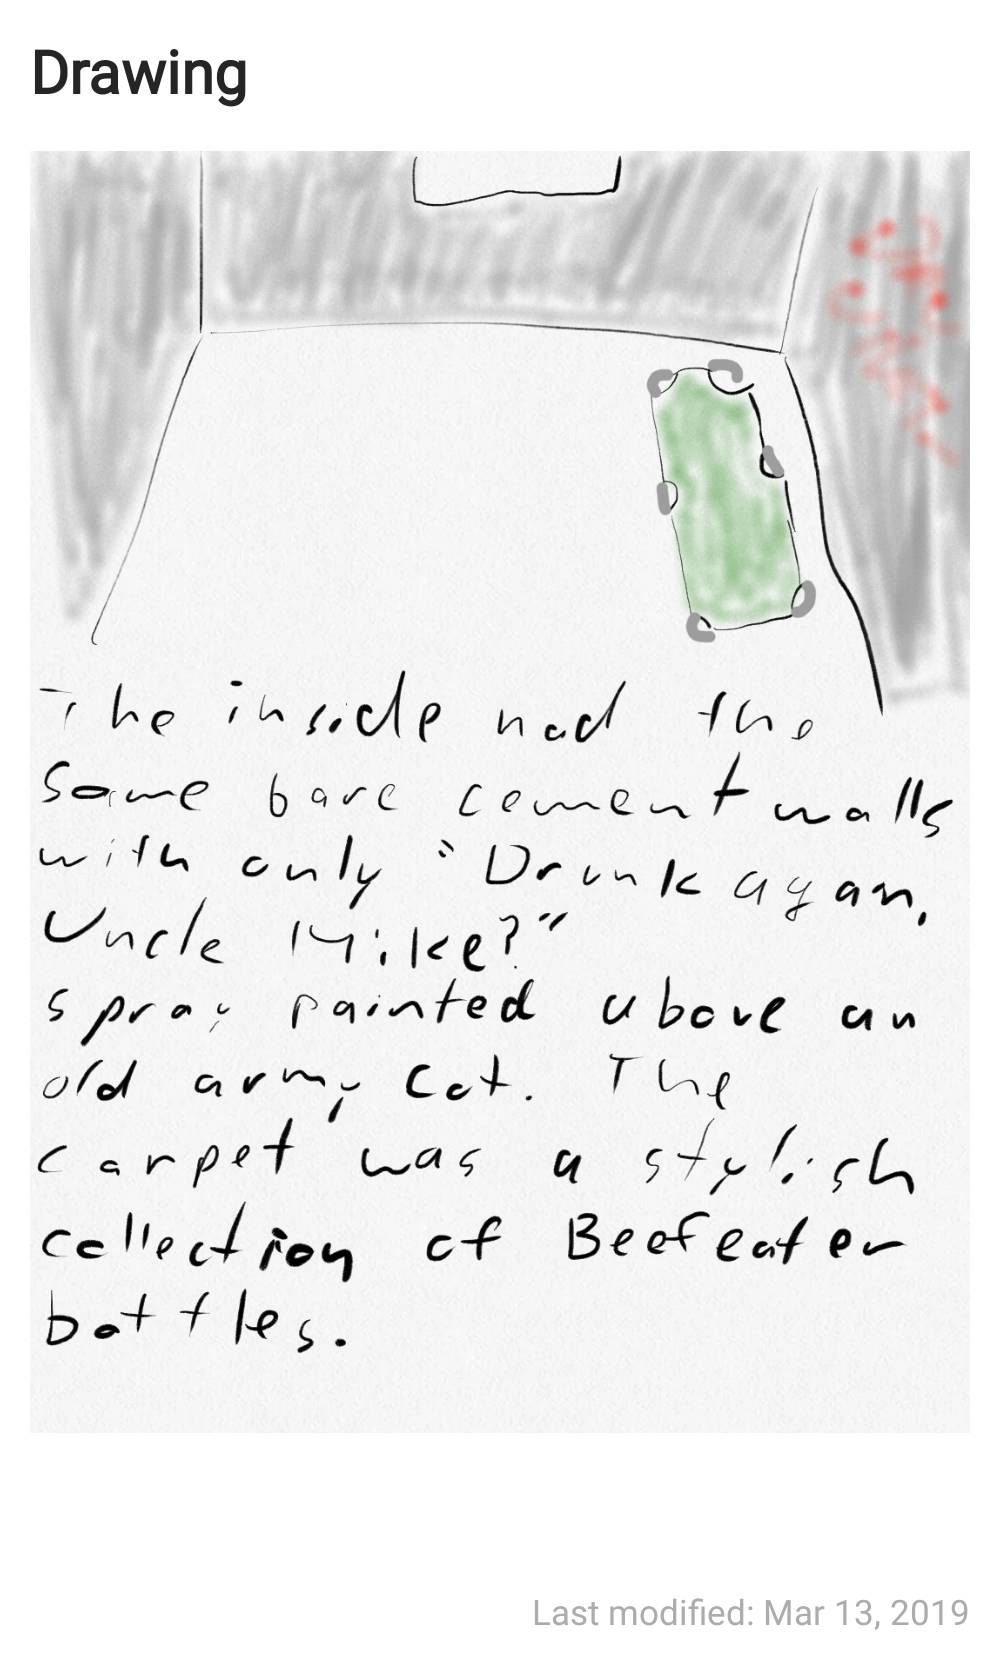 Drawing
The inside had the
same bare cement walls
with only "Drunk again,
Uncle Mike?"
spray painted above an
old army cot. The
carpet was a stylish
collection of Beefeater
bottles.
Last modified: Mar 13, 2019